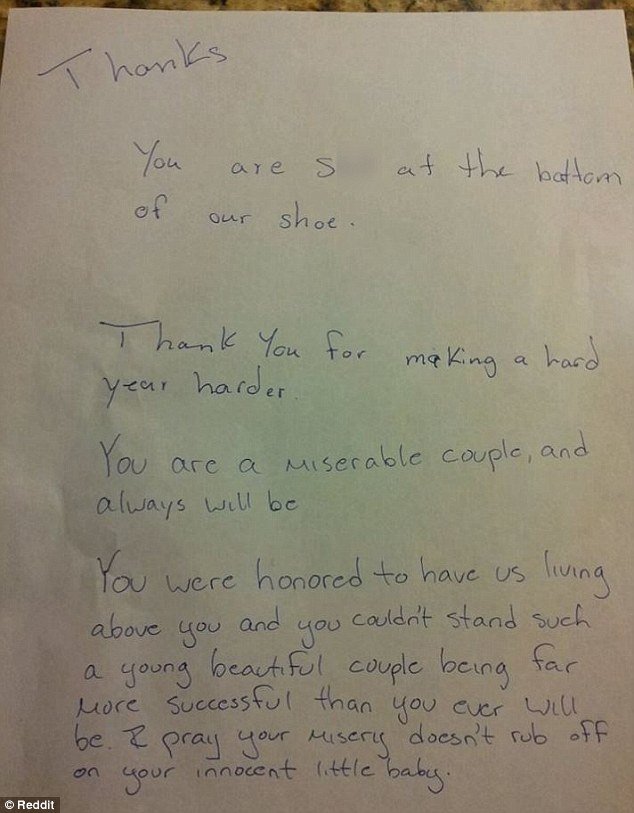 Thanks
You are s at the bottom
of our shoe.
Thank You for making a hard
year harder.
You are a miserable couple, and
always will be
You were honored to have us living
above you and you couldn't stand such
a young beautiful couple being far
more successful than you ever will
be. I pray your misery doesn't rub off
on your innocent little baby.
© Reddit